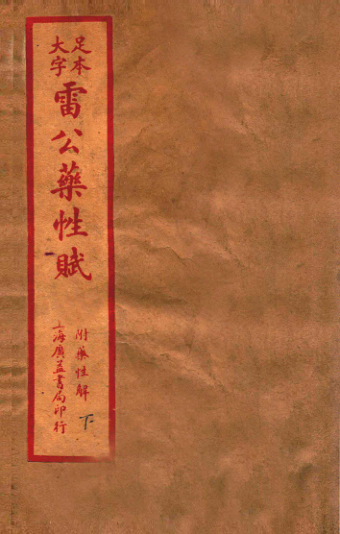 足本
大字
雷公藥性賦
附藥性解
下
上海廣益書局印行